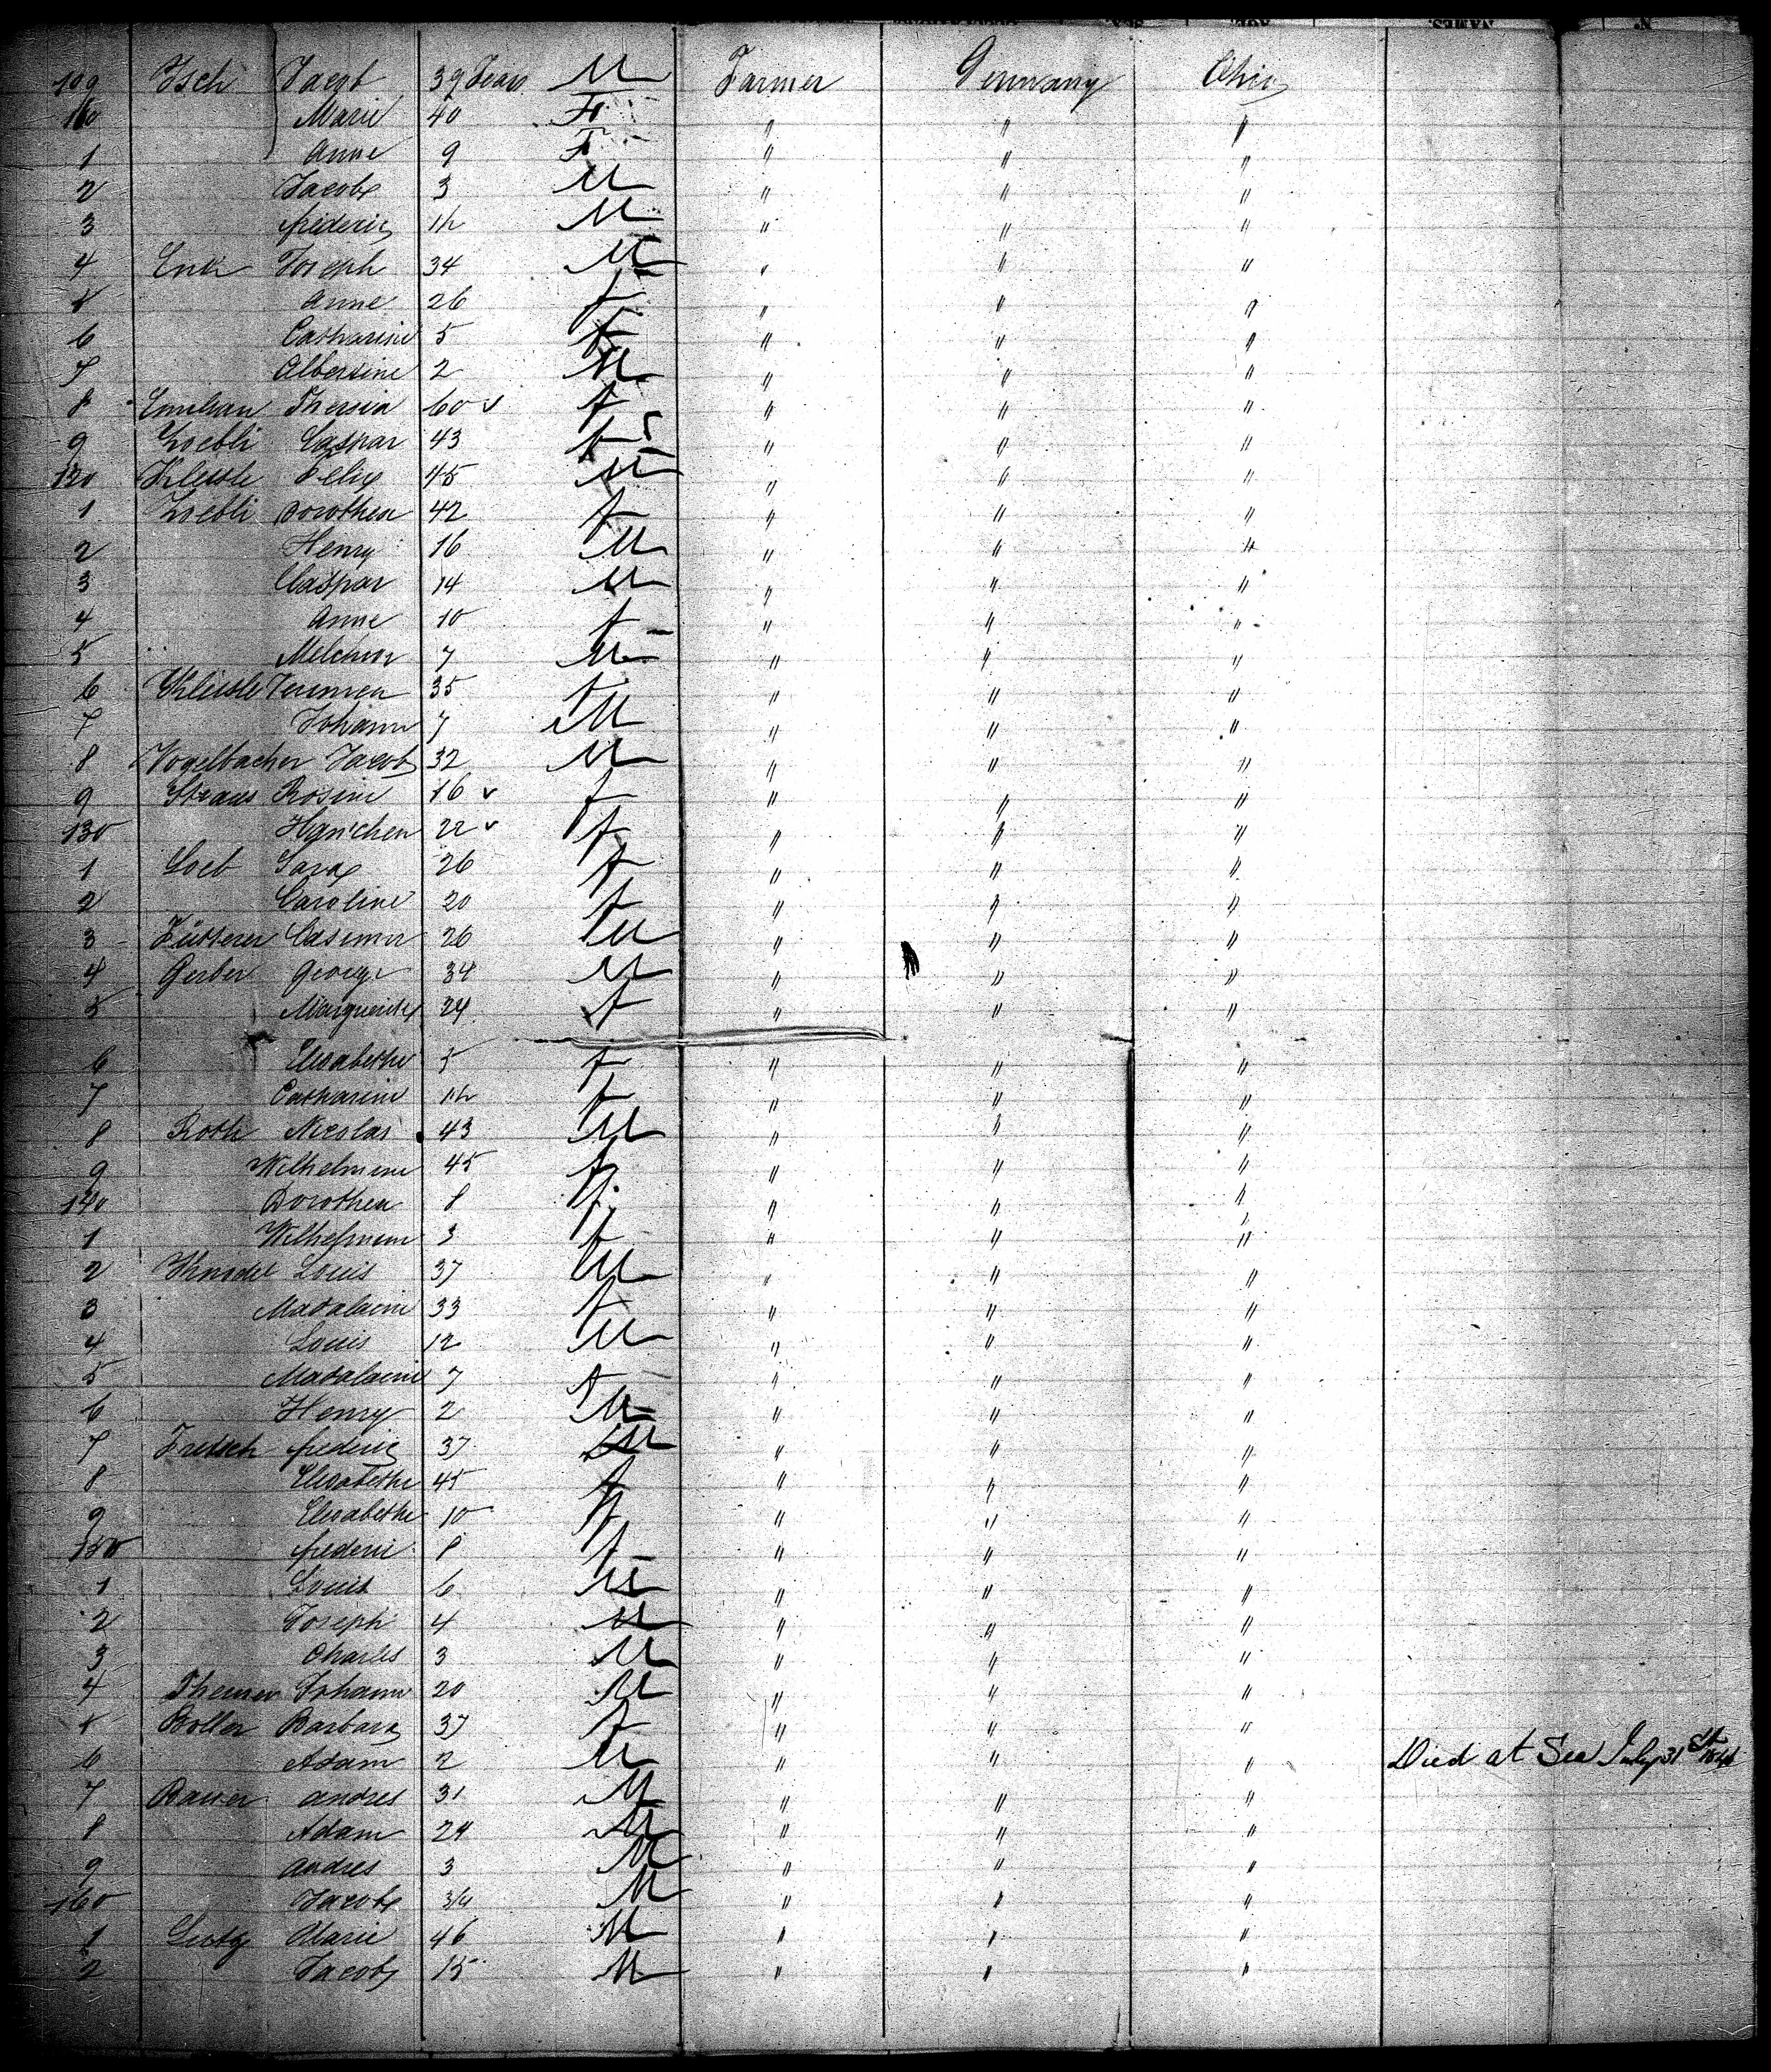 109 Isch Jacob 39 Years M Farmer Germany Ohio
110 Marie 40 F " " "
1 Anne 9 F " " "
2 Jacob 3 M " " "
3 frederic 1½ M " " "
4 Joseph 34 M " " "
5 Anne 26 f " " "
6 Catharine 5 f " " "
7 Albertine 2 M " " "
8 Thersia 60 f " " "
9 Zoebli Caspar 43 f " " "
120 Kleisle Felix 45 M " " "
1 Zoebli Dorothea 42 f " " "
2 Henry 16 M " " "
3 Caspar 14 M " " "
4 Anne 10 f " " "
5 Melchior 7 M " " "
6 Kleisle 35 f " " "
7 Johann 7 M " " "
8 Vogelbacher Jacob 32 M " " "
9 Straus Rosine 16 f " " "
130 Hanchen 22 f " " "
1 Loeb Sara 26 f " " "
2 Caroline 20 f " " "
3 Casimir 26 M " " "
4 Gerber George 34 M " " "
5 Marguerite 24 f " " "
6 Elisabethe 5 f " " "
7 Catharine 1½ f " " "
8 Roth Nicolas 43 M " " "
9 Wilhelmine 45 f " " "
140 Dorothea 8 f " " "
1 Wilhelmine 3 f " " "
2 Louis 37 M " " "
3 Madalaine 33 f " " "
4 Louis 12 M " " "
5 Madalaine 7 f " " "
6 Henry 2 M " " "
7 Fritsch frederic 37 M " " "
8 Elisabethe 45 f " " "
9 Elisabethe 10 f " " "
150 frederic 8 f " " "
1 Louis 6 M " " "
2 Joseph 4 M " " "
3 Charles 3 M " " "
4 Johann 20 M " " "
5 Boller Barbara 37 f " " "
6 Adam 2 M " " " Died at Sea July 31st
7 Bauer andres 31 M " " "
8 Adam 24 M " " "
9 andres 3 M " " "
160 Jacob M " " "
1 Marie 46 M " " "
2 Jacob 15 M " " "